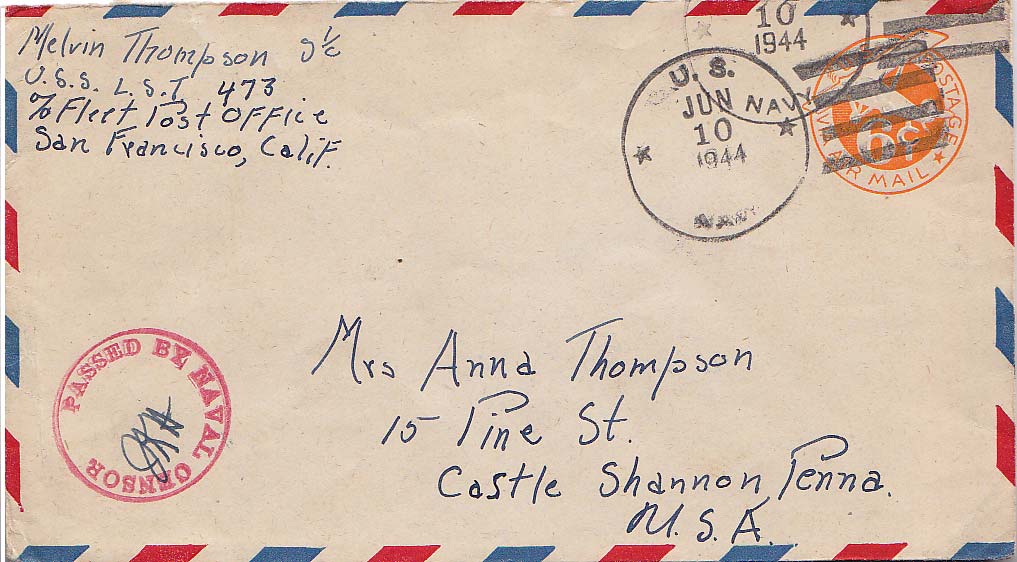 Melvin Thompson S 1/c
U.S.S. L.S.T 473
c/o Fleet Post Office
San Francisco, Calif.
10
1944
NAVY
U. S.
JUN
10
1944
NAVY
POSTAGE
6¢
VIA AIR MAIL
PASSED BY NAVAL CENSOR
Mrs Anna Thompson
15 Pine St.
Castle Shannon, Penna.
U.S.A.